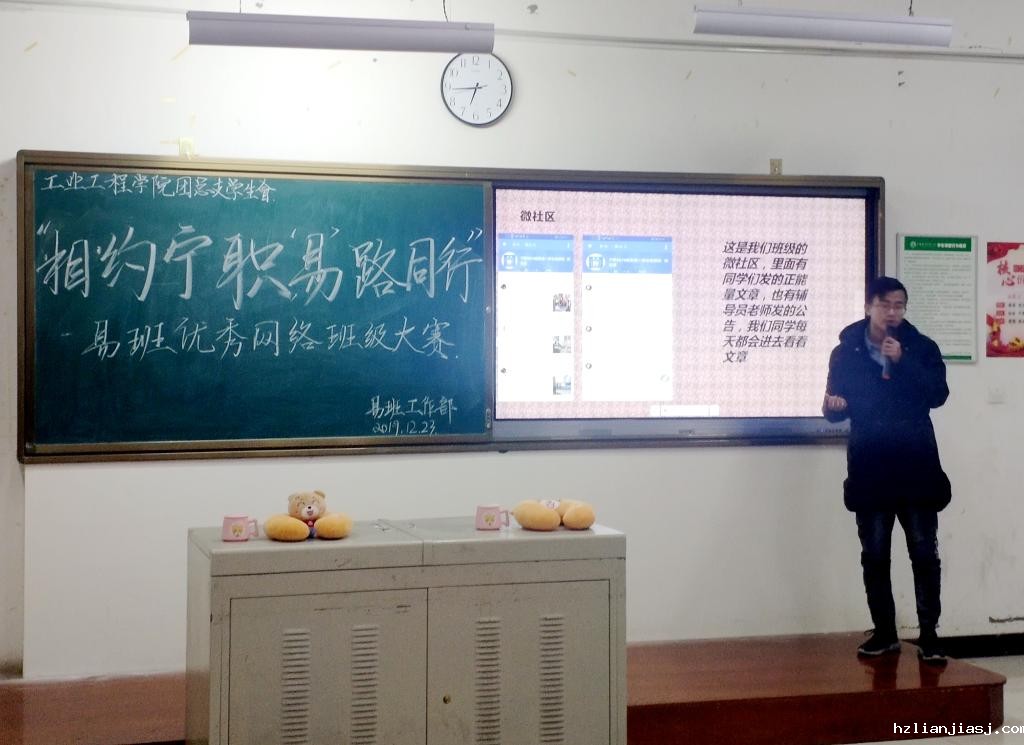 工业工程学院团总支学生會
“相约宁职‘易’路同行”
-易班优秀网络班级大赛
易班工作部
2019.12.23
微社区
这是我们班级的
微社区，里面有
同学们发的正能
量文章，也有辅
导员老师发的公
告，我们同学每
天都会进去看看
文章
核
心
hzlianjiasj.com